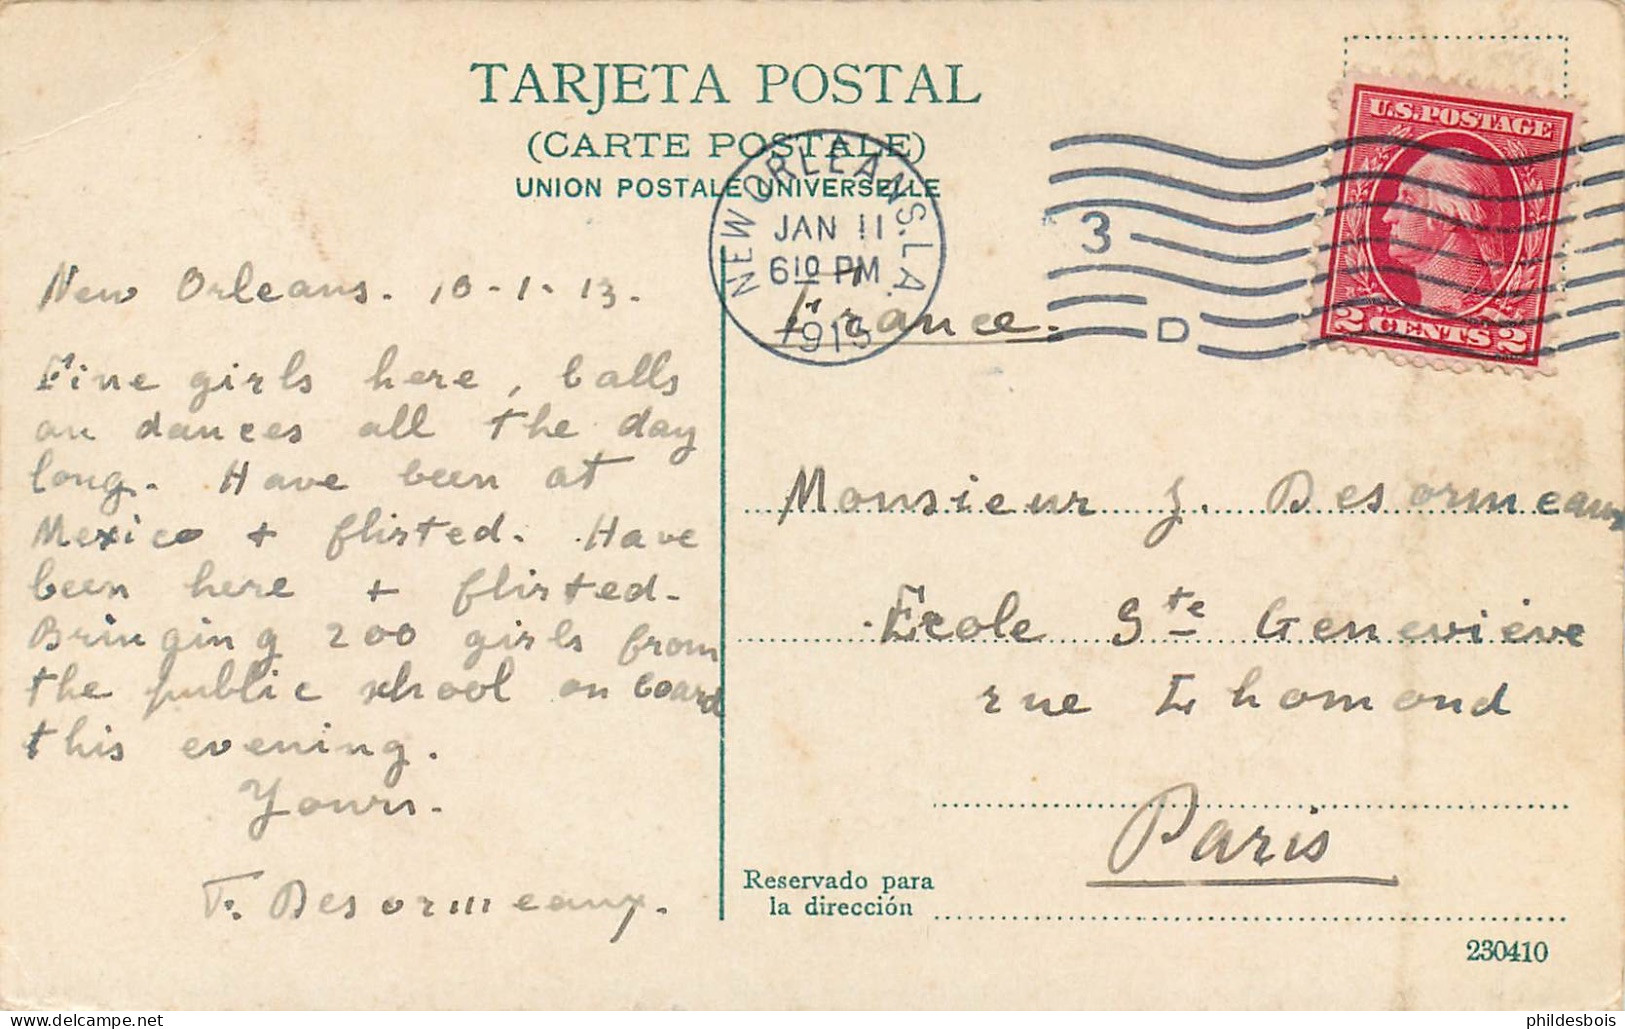 TARJETA POSTAL
(CARTE POSTALE)
UNION POSTALE UNIVERSELLE
NEW ORLEANS. LA.
JAN 11
6 10 PM
1913
3
D
U.S. POSTAGE
2 CENTS 2
New Orleans. 10-1-13.
Fine girls here, balls
an dances all the day
long. Have been at
Mexico + flirted. Have
been here + flirted.
Bringing 200 girls from
the public school on board
this evening.
Yours.
F. Desormeaux.
France.
Monsieur J. Desormeaux
École Ste Geneviève
rue Lhomond
Paris
Reservado para
la dirección
230410
phildesbois